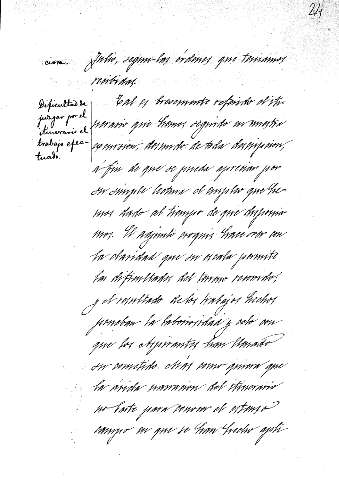 24
cion.
Julio, segun las órdenes que teniamos
recibidas.
Dificultad de
juzgar por el
itinerario el
trabajo efec-
tuado.
Tal es brevemente referido el iti-
nerario que hemos seguido en nuestra
comision, desnudo de toda descripcion,
á fin de que se pueda apreciar por
su simple lectura el empleo que he-
mos dado al tiempo de que disponia-
mos. El adjunto croquis hace ver con
la claridad que su escala permite
las dificultades del terreno recorrido;
y el resultado de los trabajos hechos
prueban la laboriosidad y celo con
que los Aspirantes han llenado
su cometido. Más como quiera que
la árida narracion del itinerario
no baste para conocer el extenso
campo en que se han hecho apli-